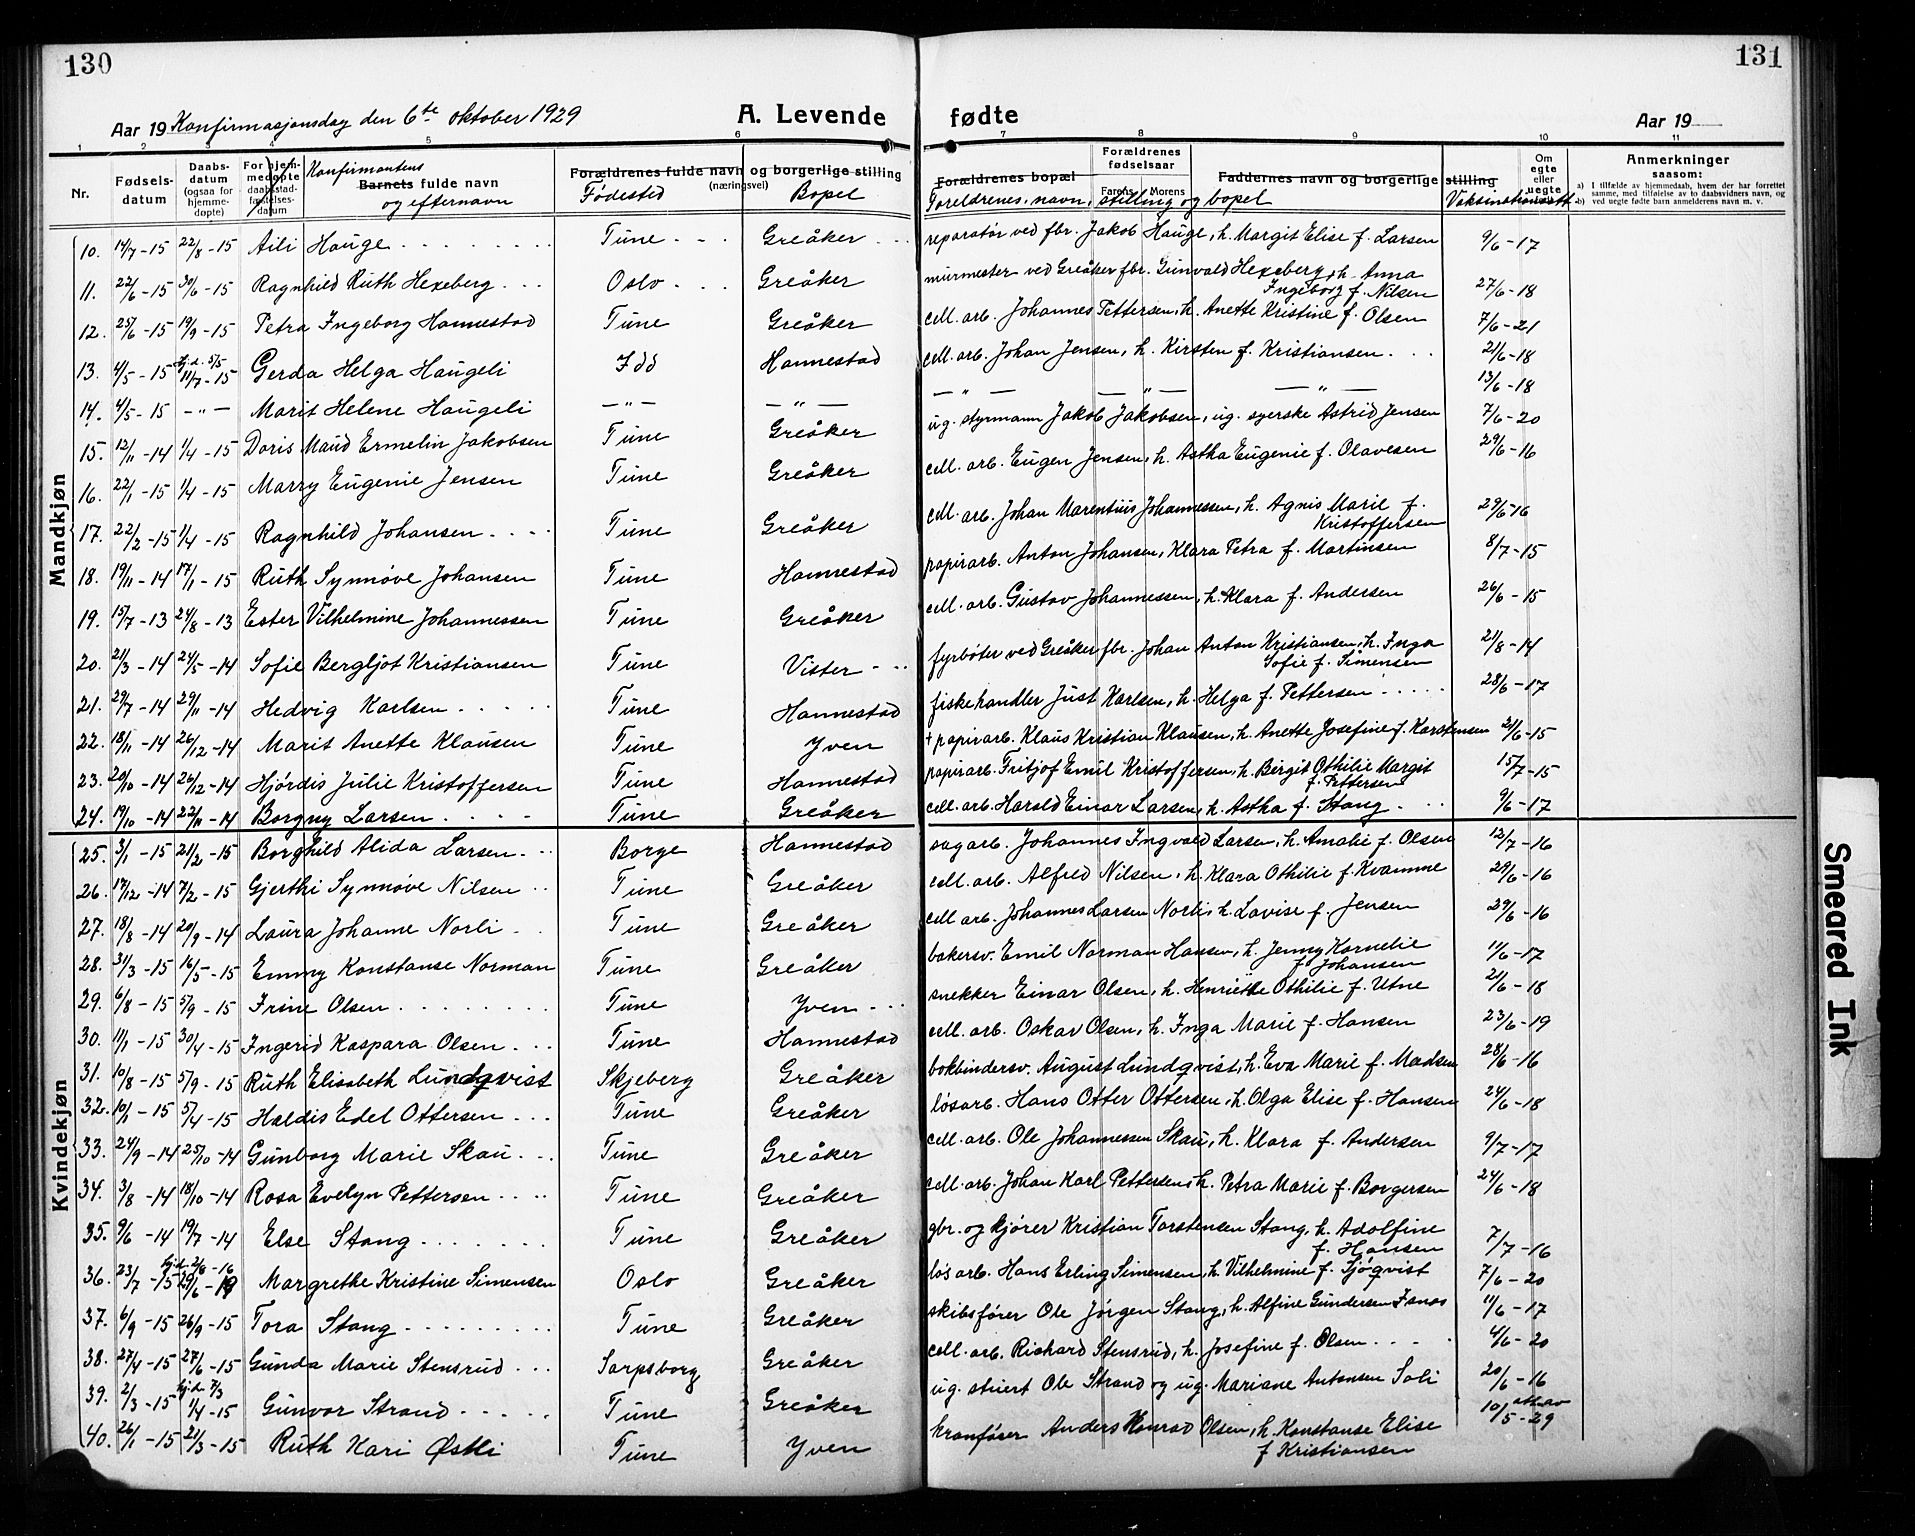 130
131
Aar 19 Konfirmasjonsdag den 6te oktober 1929
A. Levende fødte
Aar 19
1 2 3 4 5 6 7 8 9 10 11
Nr.
Fødsels-datum
Daabs-datum (ogsaa for hjemme-døpte)
For hjem-medøpte daabsstad-fæstelses-datum
Konfirmantens
Barnets fulde navn
og efternavn
Forældrenes fulde navn og borgerlige stilling
(næringsvei)
Fødested
Bopel
Forældrenes bopæl
Forældrenes fødselsaar
Farens Morens
Faddernes navn og borgerlige stilling
Foreldrenes navn, stilling og bopel
Om egte eller uegte
Vaksinationsatt.
Anmerkninger
saasom:
a) I tilfælde av hjemmedaab, hvem der har forrettet samme, med tilføielse av to daabsvidners navn, og
b) ved uegte fødte barn anmelderens navn m. v.
Mandkjøn
10. 14/7-15 22/8-15 Aili Hauge Tune Greåker reparatør ved fbr. Jakob Hauge, h. Margit Elise f. Larsen 9/6-17
11. 22/6-15 30/6-15 Ragnhild Ruth Hexeberg Oslo Greåker murmester ved Greåker fbr. Gunvald Hexeberg, h. Anna
Ingeborg f. Nilsen 27/6-18
12. 25/6-15 19/9-15 Petra Ingeborg Hannestad Tune Greåker cell. arb. Johannes Pettersen, h. Anette Kristine f. Olsen 7/6-21
13. 4/5-15 hj.d. 5/5 11/7-15 Gerda Helga Haugeli Idd Hannestad cell. arb. Johan Jensen, h. Kirsten f. Kristiansen 21/6-18
14. 4/5-15 -"- Marit Helene Haugeli -"- -"- -"- -"- -"- 13/6-18
15. 12/11-14 1/4-15 Doris Maud Ermelin Jakobsen Tune Greåker ug. styrmann Jakob Jakobsen, ug. syerske Astrid Jensen 7/6-20
16. 22/1-15 1/4-15 Marry Eugenie Jensen Tune Greåker cell. arb. Eugen Jensen, h. Astha Eugenie f. Olavesen 29/6-16
17. 22/2-15 1/4-15 Ragnhild Johansen Tune Greåker cell. arb. Johan Marentius Johannessen, h. Agnis Marie f.
Kristoffersen 29/6-16
18. 19/11-14 17/1-15 Ruth Synnøve Johansen Tune Hannestad papirarb. Anton Johansen, Klara Petra f. Martinsen 8/7-15
19. 15/7-13 24/8-13 Ester Vilhelmine Johannessen Tune Greåker cell. arb. Gustav Johannessen, h. Klara f. Andersen 26/6-15
20. 21/3-14 24/5-14 Sofie Bergljot Kristiansen Tune Vister fyrbøter ved Greåker fbr. Johan Anton Kristiansen, h. Inga
Sofie f. Simensen 21/8-14
21. 29/7-14 29/11-14 Hedvig Karlsen Tune Hannestad fiskehandler Just Karlsen, h. Helga f. Pettersen 28/6-17
22. 18/11-14 26/12-14 Marit Anette Klausen Tune Yven + papirarb. Klaus Kristian Klausen, h. Anette Josefine f. Karstensen 21/6-15
23. 20/10-14 26/12-14 Hjördis Julie Kristoffersen Tune Hannestad papirarb. Fritjof Emil Kristoffersen, h. Birgit Othilie Margit
f. Pettersen 15/7-15
24. 19/10-14 22/11-14 Borgny Larsen Tune Greåker cell. arb. Harald Einar Larsen, h. Astha f. Stang 9/6-17
Kvindekjøn
25. 3/1-15 21/2-15 Borghild Alida Larsen Borge Hannestad sagarb. Johannes Ingvald Larsen, h. Amalie f. Olsen 12/7-16
26. 17/12-14 7/2-15 Gjerthi Synnøve Nilsen Tune Greåker cell. arb. Alfred Nilsen, h. Klara Othilie f. Kvamme 29/6-16
27. 18/8-14 20/9-14 Laura Johanne Norli Tune Greåker cell arb. Johannes Larsen Norli, h. Lovise f. Jensen 29/6-16
28. 31/3-15 16/5-15 Emmy Konstanse Norman Tune Greåker bakersv. Emil Norman Hansen, h. Jenny Kornelie
f. Johansen 11/6-17
29. 6/8-15 5/9-15 Irine Olsen Tune Yven snekker Einar Olsen, h. Henriette Othilie f. Utne 21/6-18
30. 11/1-15 30/4-15 Ingerid Kaspara Olsen Tune Hannestad cell. arb. Oskar Olsen, h. Inga Marie f. Hansen 23/6-19
31. 10/8-15 5/9-15 Ruth Elisabeth Lundqvist Skjeberg Greåker bokbindersv. August Lundqvist, h. Eva Marie f. Madsen 28/6-16
32. 10/1-15 5/4-15 Haldis Edel Ottersen Tune Greåker løsarb. Hans Otter Ottersen, h. Olga Elise f. Hansen 24/6-18
33. 24/9-14 25/10-14 Gunborg Marie Skau Tune Greåker cell. arb. Ole Johannessen Skau, h. Klara f. Andersen 9/7-17
34. 3/8-14 18/10-14 Rosa Evelyn Pettersen Tune Greåker cell. arb. Johan Karl Pettersen, h. Petra Marie f. Borgersen 24/6-18
35. 9/6-14 19/7-14 Else Stang Tune Greåker gbr. og kjører Kristian Torstensen Stang, h. Adolfine
f. Hansen 7/7-16
36. 23/7-15 hj.d. 2/8-16 29/6-19 Margrethe Kristine Simensen Oslo Greåker løsarb. Hans Erling Simensen, h. Vilhelmine f. Sjøqvist 7/6-20
37. 6/9-15 26/9-15 Tora Stang Tune Greåker skibsfører Ole Jörgen Stang, h. Alfine Gundersen Isnæs 11/6-17
38. 27/4-15 27/6-15 Gunda Marie Stensrud Sarpsborg Greåker cell. arb. Richard Stensrud, h. Josefine f. Olsen 4/6-20
39. 2/3-15 hj.d. 7/3 1/4-15 Gunvor Strand Tune Greåker ug. stuert Ole Strand og ug. Mariane Antonsen Soli 20/6-16
40. 26/1-15 21/3-15 Ruth Kari Østli Tune Yven kranfører Anders Konrad Olsen, h. Konstanse Elise
f Kristiansen 10/5-29
Smeared Ink